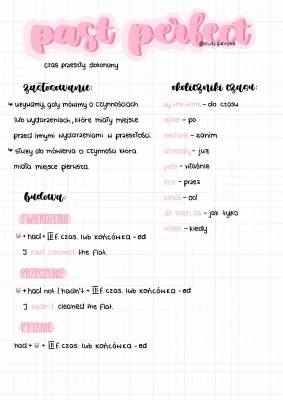 past perfect
czas przeszły dokonany
zastosowanie:
używamy, gdy mówimy o czynnościach
lub wydarzeniach, które miały miejsce
przed innymi wydarzeniami w przeszłości.
służy do mówienia o czynności która
miała miejsce pierwsza.
budowa:
TWIERDZENIE
+ had + III f. czas. lub końcówka - ed
I had cleaned the flat.
PRZECZENIE
+ had not / hadn't + III f. czas. lub końcówka - ed
I hadn't cleaned the flat.
PYTANIE
had + + III f. czas. lub końcówka - ed
okoliczniki czasu:
by the time - do czasu
after - po
before - zanim
already - już
just - właśnie
for - przez
since - od
as soon as - jak tylko
when - kiedy